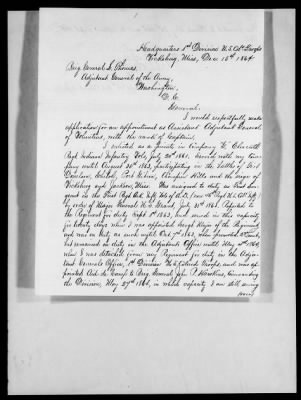 Headquarters 1st Division U.S. Col. Troops
Vicksburg, Miss, Dec 15th 1864
Brig General L. Thomas.
Adjutant General of the Army,
Washington,
D. C.
General:
I would respectfully make
application for an appointment as Assistant Adjutant General
of Volunteers, with the rank of Captain.
I enlisted as a private in Company "G" Eleventh
Regt Indiana Infantry Vols, July 20th 1861. Served with my Com-
pany until August 26th 1863, participating in the battles of Fort
Donelson, Shiloh, Port Gibson, Champion Hills and the siege of
Vicksburg and Jackson, Miss. Was assigned to duty as
in the First Regt
by order of Major General U. S. Grant July 31st 1863. Reported to
the Regiment for duty Sept 1st 1863, and served in this capacity
for twenty days when I was appointed Sergt Major of the Regiment
and was on duty as such until Oct 7th 1863, when promoted 2d Lieut,
but remained on duty in the Adjutants Office until May 10th 1864,
when I was detached from my Regiment for duty in the Adju-
tant Generals Office, 1st Division U.S. Colored Troops, and was ap-
pointed Aid de Camp to Brig General John P. Hawkins, Commanding
the Division, May 27th 1864, in which capacity I am still serving